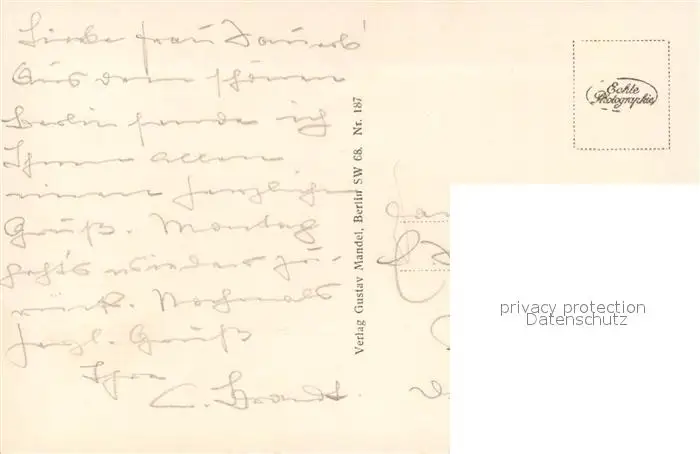 Liebe Frau
Aus dem schönen
Berlin sende ich
Ihnen Allen
einen herzlichen
Gruß. Montag
geht's wieder zu-
rück. Nochmals
herzl. Gruß
Ihre
C. Brandt.
Verlag Gustav Mandel, Berlin SW 68. Nr. 187
Echte
Photographie
privacy protection
Datenschutz